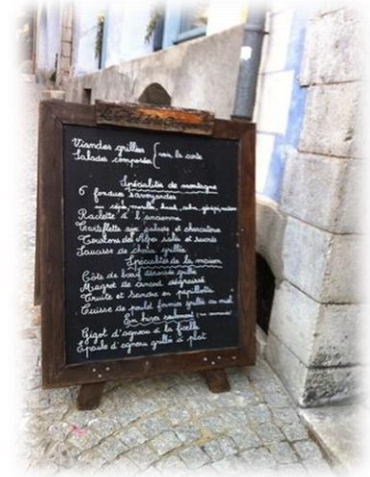 Viandes grillées
Salades composées } voir la carte
Spécialités de montagne
6 fondues savoyardes
au cèpe, morille,
Raclette à l'ancienne
Tartiflette aux salade et charcuterie
des Alpes salés et sucrés
Saucisse de choux grillée
Spécialités de la maison
Côte de bœuf désossée grillée
Magret de canard dégraissé
Truite et en papillote
Cuisse de poulet fermier grillée au miel
En hiver seulement (sur commande)
Gigot d'agneau à la ficelle
Epaule d'agneau grillée à plat